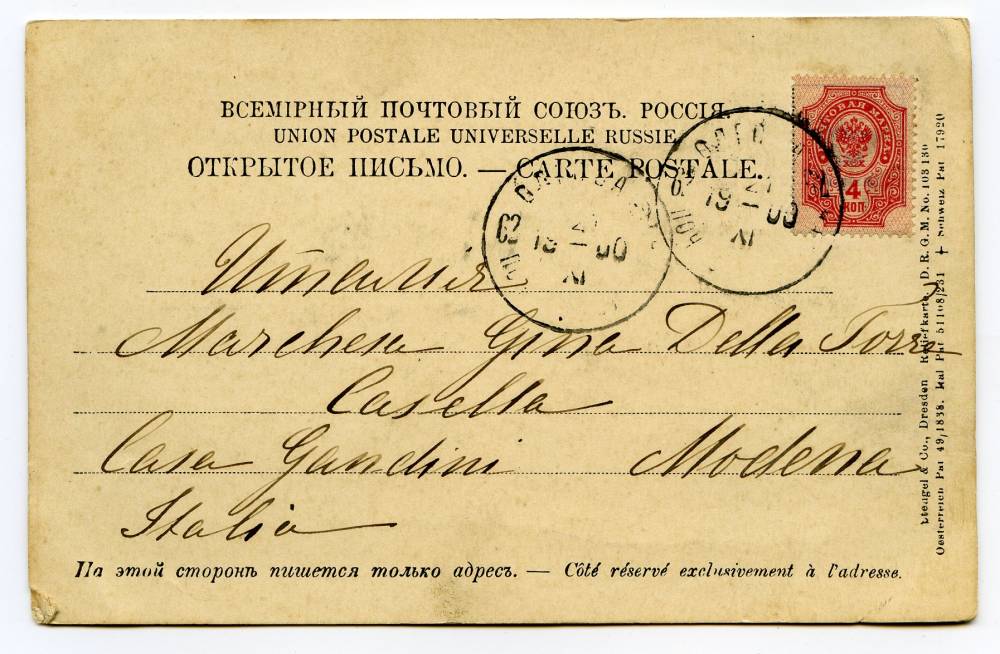 ВСЕМІРНЫЙ ПОЧТОВЫЙ СОЮЗЪ. РОССІЯ.
UNION POSTALE UNIVERSELLE RUSSIE.
ОТКРЫТОЕ ПИСЬМО. — CARTE POSTALE.
ПОЧТОВАЯ МАРКА
4 КОП
19 — 00
XI
21
19 — 00
XI
Италия
Marchesa Gina Della Torre
Casella
Casa Gandini Modena
Italia
На этой сторонѣ пишется только адресъ. — Côté réservé exclusivement à l'adresse.
Stengel & Co., Dresden Reliefkarte D. R. G. M. No. 103130
Oesterreich Pat 49/1838. Ital Pat 51108/231 + Schweiz Pat 17920